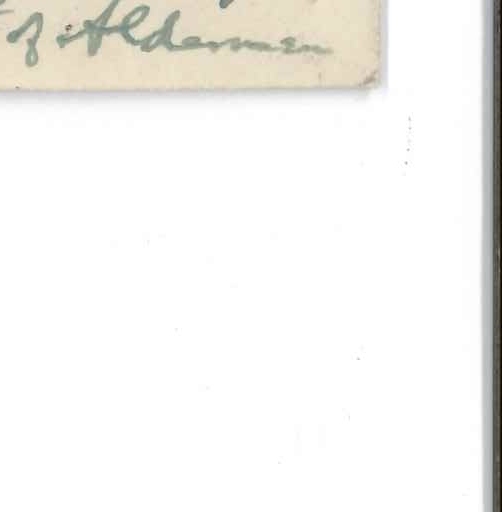 of Aldermen